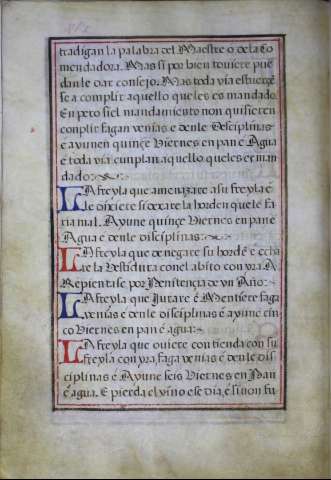 tradigan la palabra del Maestre o de la Co
mendadora. Mas si por bien toviere pue
danle dar consejo. Mas toda via esfuerçe
se a complir aquello que les es mandado.
En pero si el mandamiento non quisieren
conplir fagan venias e denle Desciplinas
e ayunen quinçe Viernes en pan e Agua
e toda via cunplan aquello que les es man
dado:
La freyla que amenazare a su freyla e
le dixere si
ria mal. Ayune quinçe Viernes en pan e
Agua e denle disciplinas:
La freyla que denegare su horde e echa
re la Vestidura con el abito con yra A
Repientase por Penitençia de un Año:
La freyla que Jurare e Mentiere faga
venias e denle disciplinas e ayune çin
co Viernes en pan e agua:
La freyla que oviere contienda con su
freyla con yra, faga venias e denle dis
ciplinas e Ayune seis Viernes en Pan
e agua. E pierda el vino ese dia, e si non fu